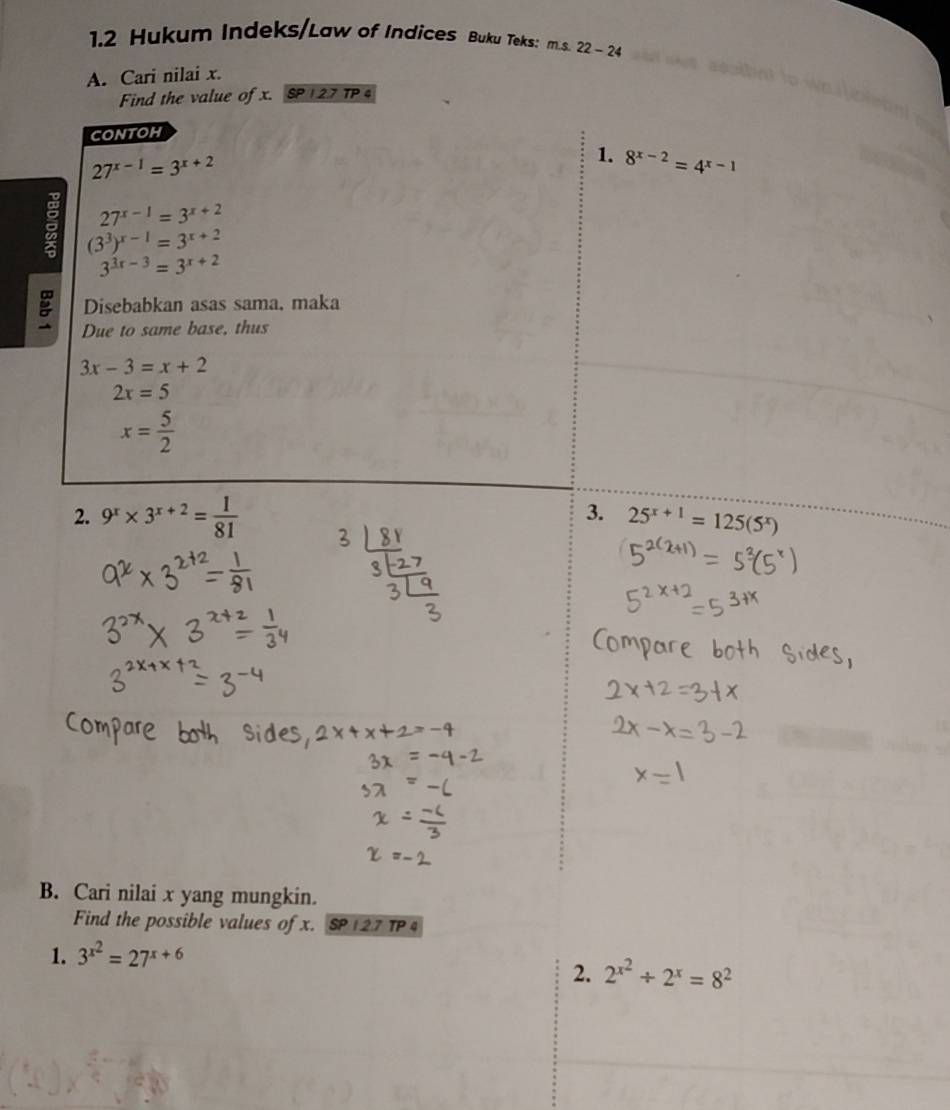 1.2 Hukum Indeks/Law of Indices Buku Teks: m.s. 22 – 24
A. Cari nilai x.
Find the value of x. SP 1.2.7 TP 4
CONTOH
27^(x – 1) = 3^(x + 2)
27^(x – 1) = 3^(x + 2)
(3^3)^(x – 1) = 3^(x + 2)
3^(3x – 3) = 3^(x + 2)
Disebabkan asas sama, maka
Due to same base, thus
3x – 3 = x + 2
2x = 5
x = 5/2
1. 8^(x – 2) = 4^(x – 1)
PBD/DSKP
Bab 1
2. 9^x × 3^(x + 2) = 1/81
9^x × 3^(x+2) = 1/81
3^(2x) × 3^(x+2) = 1/3^4
3^(2x+x+2) = 3^(-4)
3 81
3 27
3 9
3
Compare both sides, 2x+x+2=-4
3x = -4-2
3x = -6
x = -6/3
x = -2
3. 25^(x + 1) = 125(5^x)
5^(2(x+1)) = 5^3(5^x)
5^(2x+2) = 5^(3+x)
Compare both sides,
2x+2=3+x
2x-x=3-2
x=1
B. Cari nilai x yang mungkin.
Find the possible values of x. SP 1.2.7 TP 4
1. 3^(x^2) = 27^(x + 6)
2. 2^(x^2) ÷ 2^x = 8^2